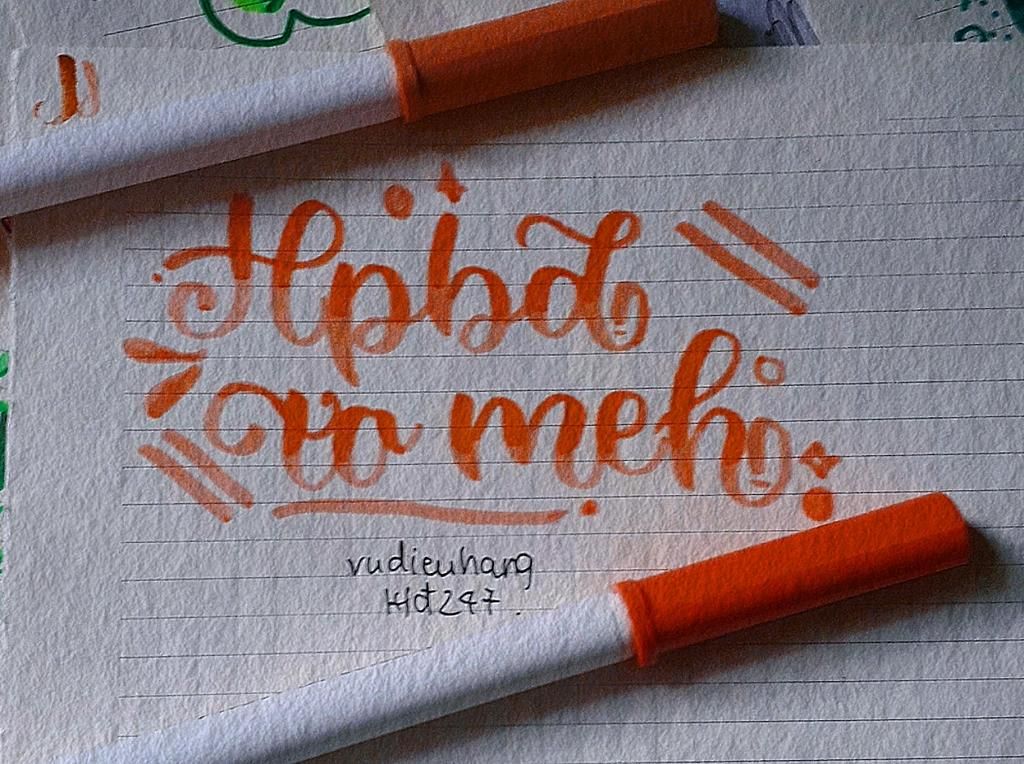 Hpbd
vo meh
vudieuhang
Hđ247.